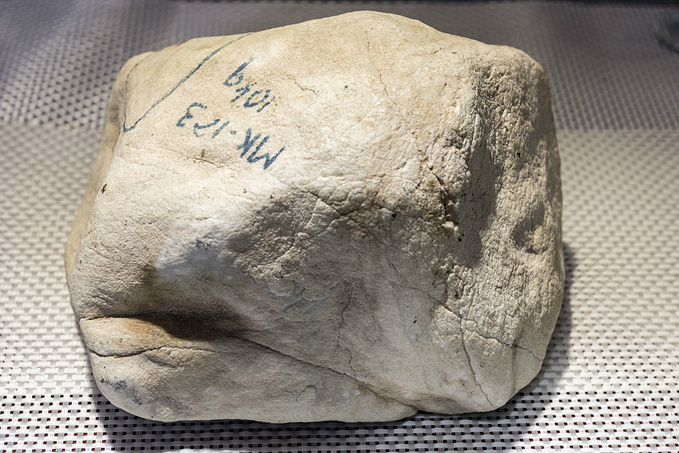 MK-123
10kg